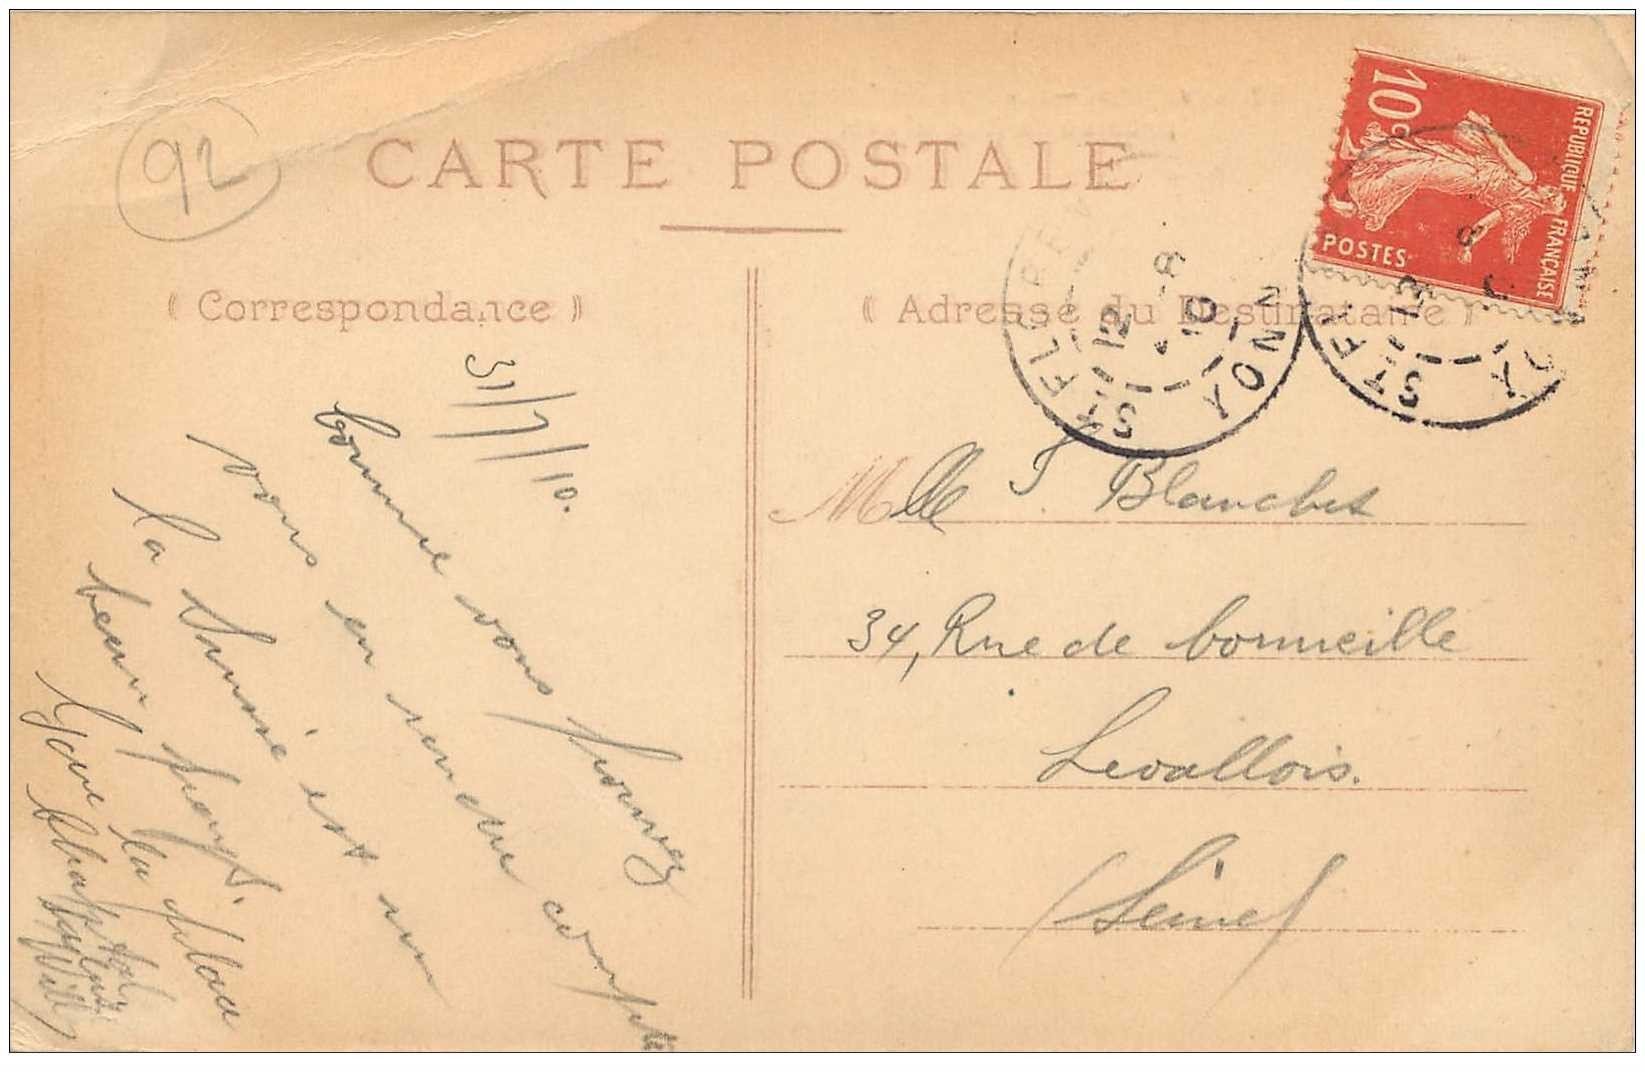 92
CARTE POSTALE
10c
REPUBLIQUE FRANÇAISE
POSTES
ST FLOREN
YONNE
12 - 8
10
ST F
12
8
( Correspondance )
( Adresse du Destinataire )
31/7/10.
Comme vous pouvez
vous en rendre compte
la Senné est un
beau
la place
Willy
Mlle J. Blanchet
34, Rue de Corneille
Levallois.
(Seine)